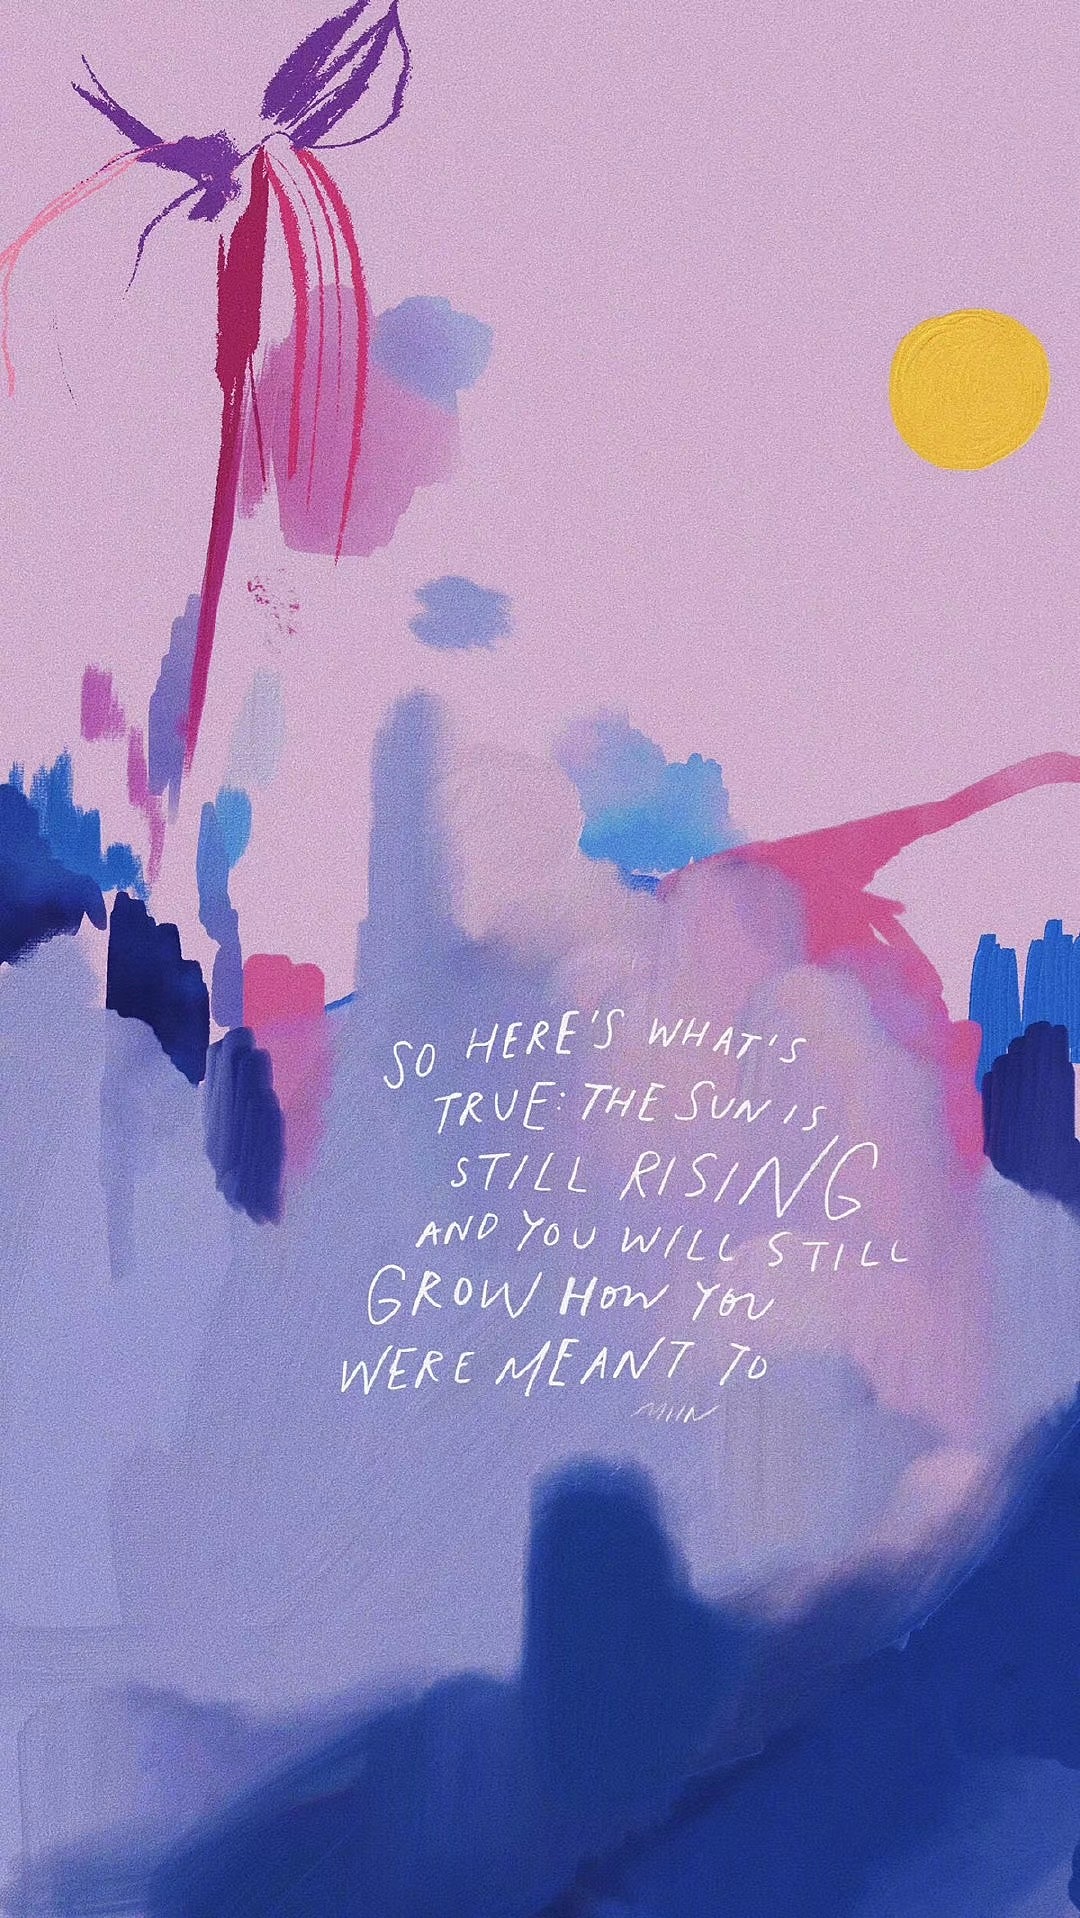 SO HERE'S WHAT'S
TRUE: THE SUN IS
STILL RISING
AND YOU WILL STILL
GROW HOW YOU
WERE MEANT TO
MHN